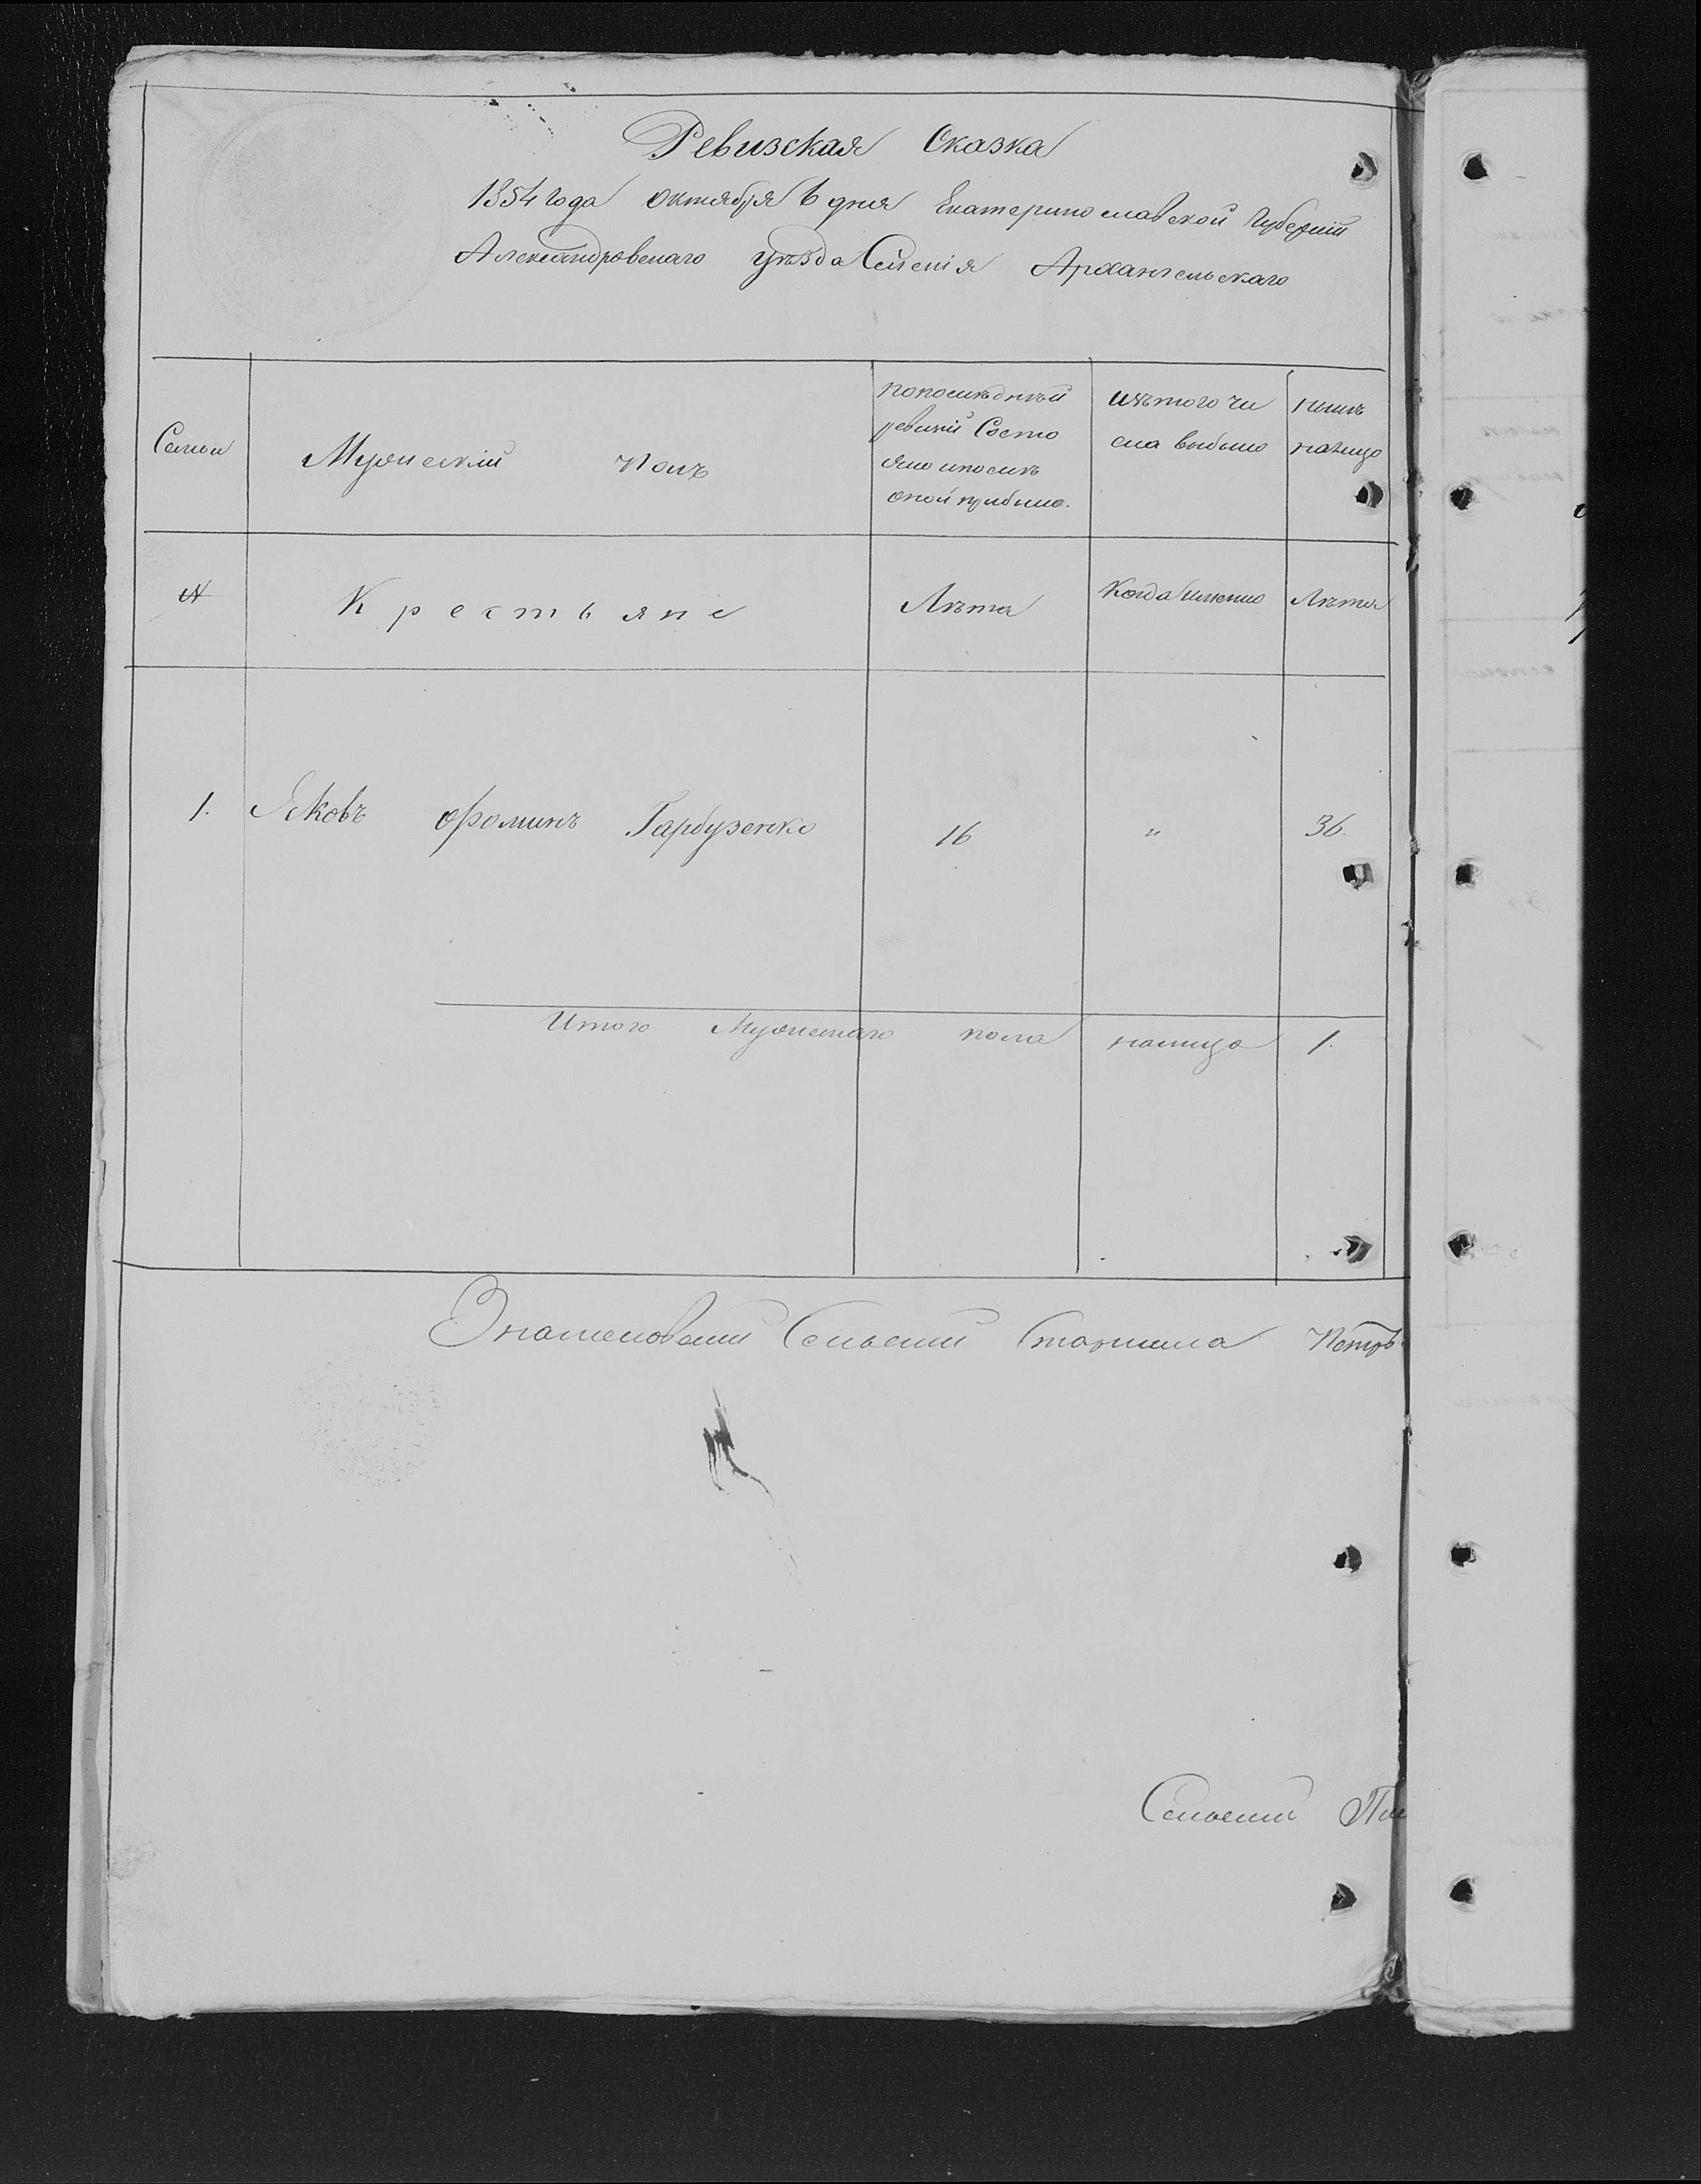 Ревизская Сказка
1854 года октября 6 дня Екатеринославской Губерніи
Александровскаго уѣзда Селенія Архангельскаго
Семьи
Мужескій Полъ
попослѣдней
ревизіи Состо
яло ипослѣ
оной прибыло.
изътого чи
сла выбыло
нынѣ
налицо
№
Крестьяне
Лѣта
Когда имянно
Лѣта
1. Яковъ Фоминъ Гарбузенко 16 " 36.
Итого Мужескаго пола налицо 1.
Сельскій Старшина Петръ
Сельскій Пи